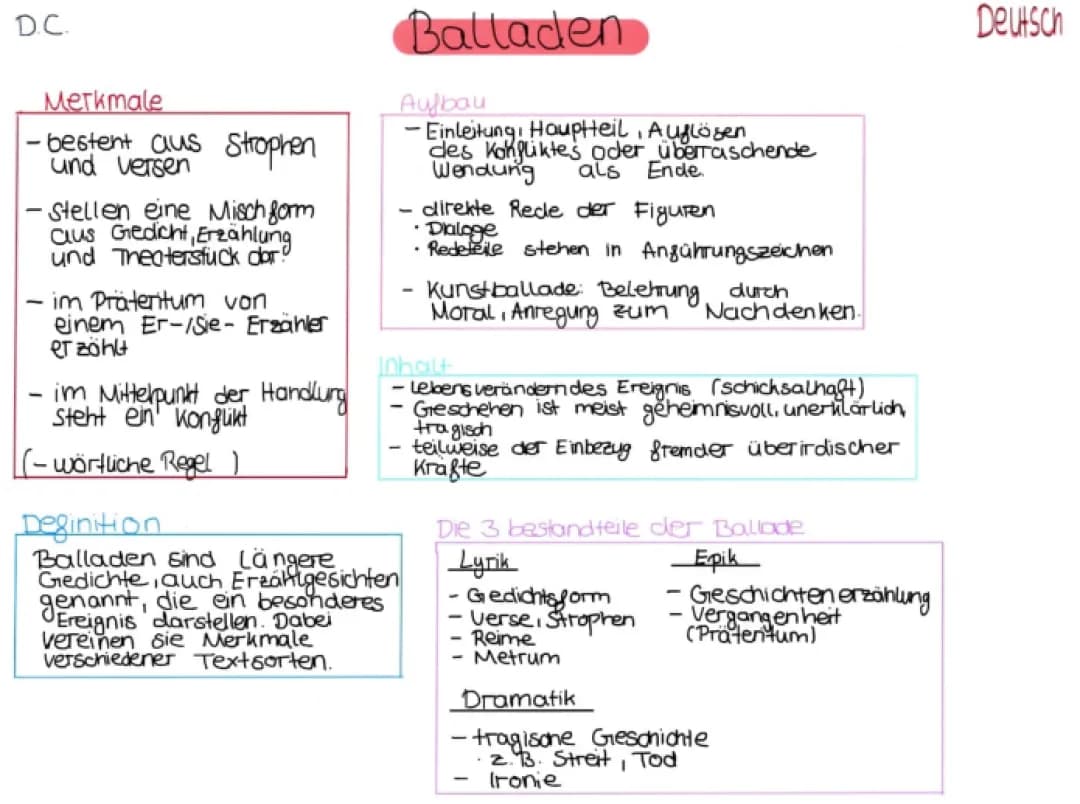 D.C.
Balladen
Deutsch
Merkmale
- besteht aus Strophen
und versen
- Stellen eine Mischform
aus Gedicht, Erzählung
und Theaterstück dar.
- im Präteritum von
einem Er-/Sie- Erzähler
erzählt
- im Mittelpunkt der Handlung
steht ein Konflikt
(- wörtliche Regel )
Aufbau
- Einleitung, Hauptteil, Auflösen
des Konfliktes oder überraschende
Wendung als Ende.
- direkte Rede der Figuren
· Dialoge
· Redeteile stehen in Anführungszeichen
- Kunstballade: Belehrung durch
Moral, Anregung zum Nachdenken.
Inhalt
- Lebensveränderndes Ereignis (schicksalhaft)
- Geschehen ist meist geheimnisvoll, unerklärlich,
tragisch
- teilweise der Einbezug fremder überirdischer
Kräfte
Definition
Balladen sind Längere
Gedichte, auch Erzählgesichten
genannt, die ein besonderes
Ereignis darstellen. Dabei
vereinen sie Merkmale
verschiedener Textsorten.
Die 3 bestandteile der Ballade
Lyrik
- Gedichtsform
- Verse, Strophen
- Reime
- Metrum
Epik
- Geschichtenerzählung
- Vergangenheit
(Präteritum)
Dramatik
- tragische Geschichte
· z.B. Streit, Tod
- Ironie